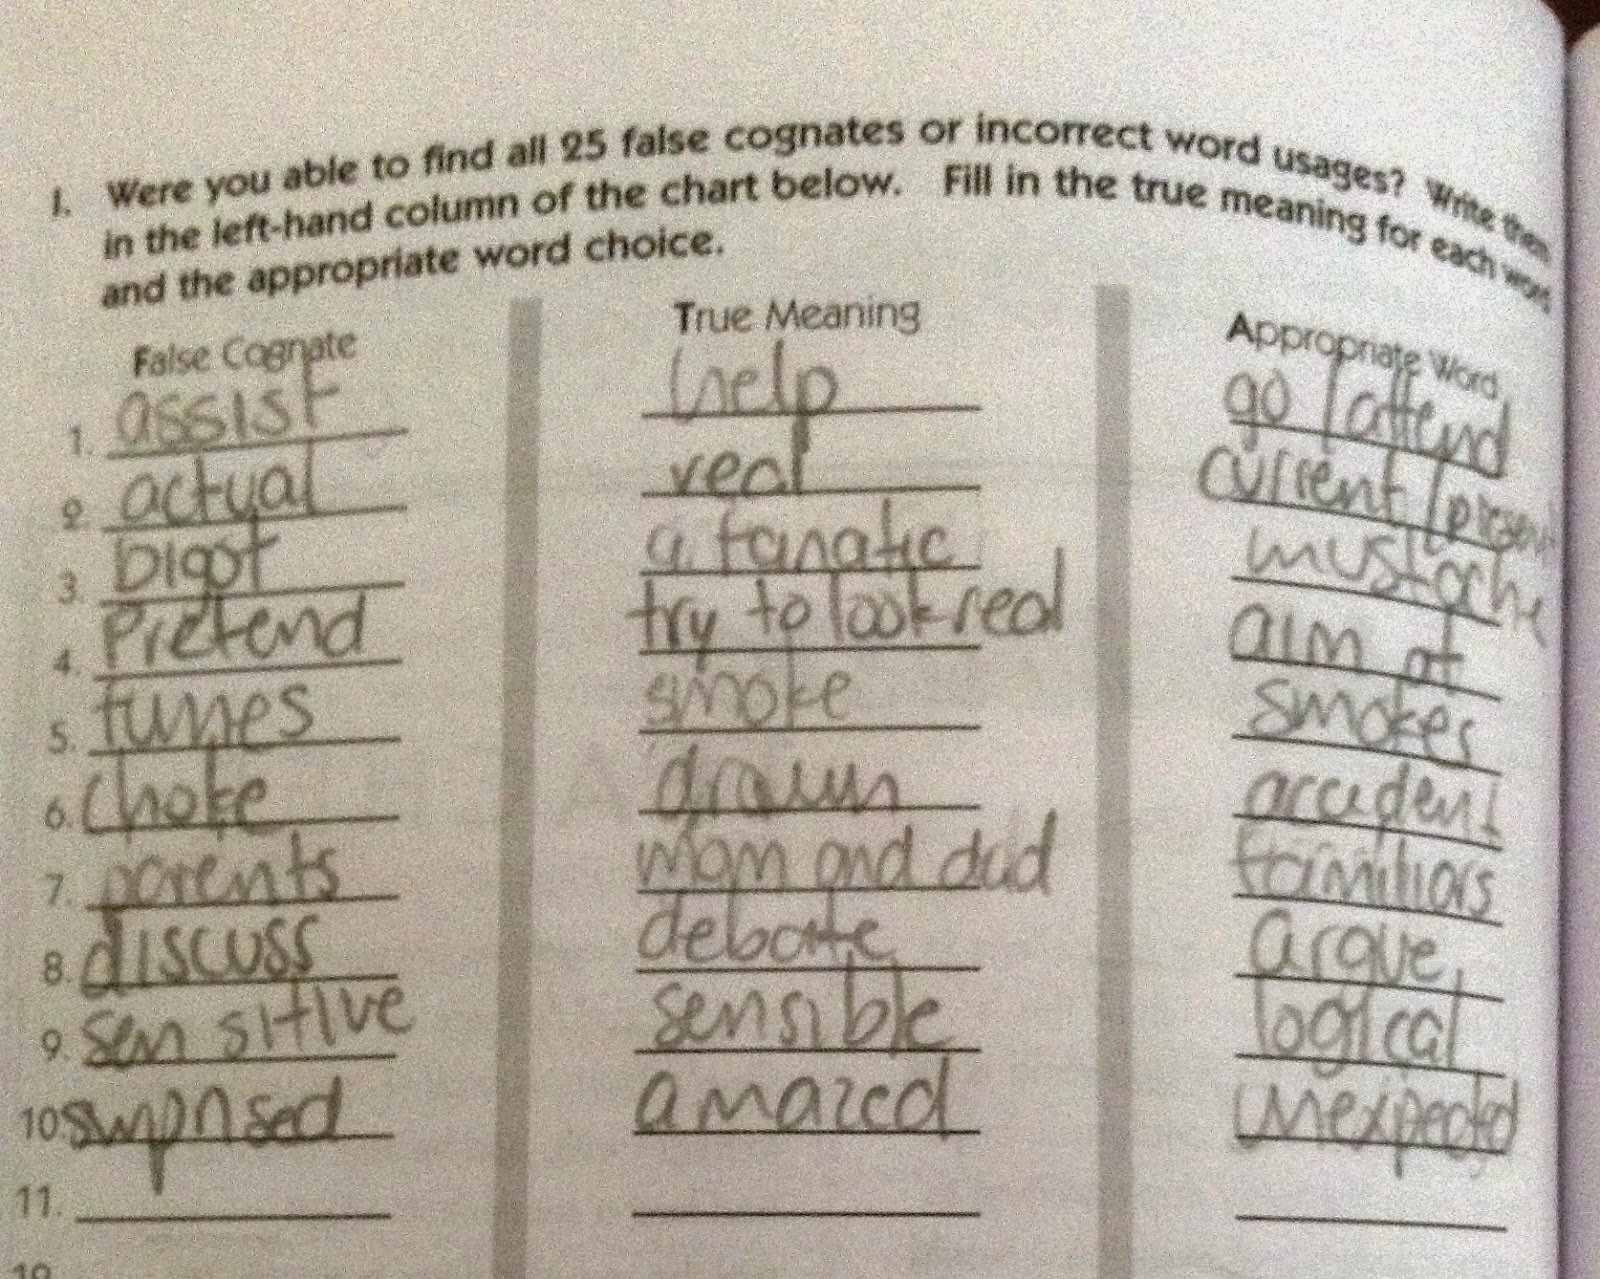 1. Were you able to find all 25 false cognates or incorrect word usages? Write them
in the left-hand column of the chart below. Fill in the true meaning for each word
and the appropriate word choice.
False Cognate True Meaning Appropriate Word
1. assist help go/attend
2. actual real current/present
3. bigot a fanatic mustache
4. Pretend try to look real aim at
5. fumes smoke smokes
6. choke drown accident
7. parents mom and dad familiars
8. discuss debate argue
9. sensitive sensible logical
10. surprised amazed unexpected
11.